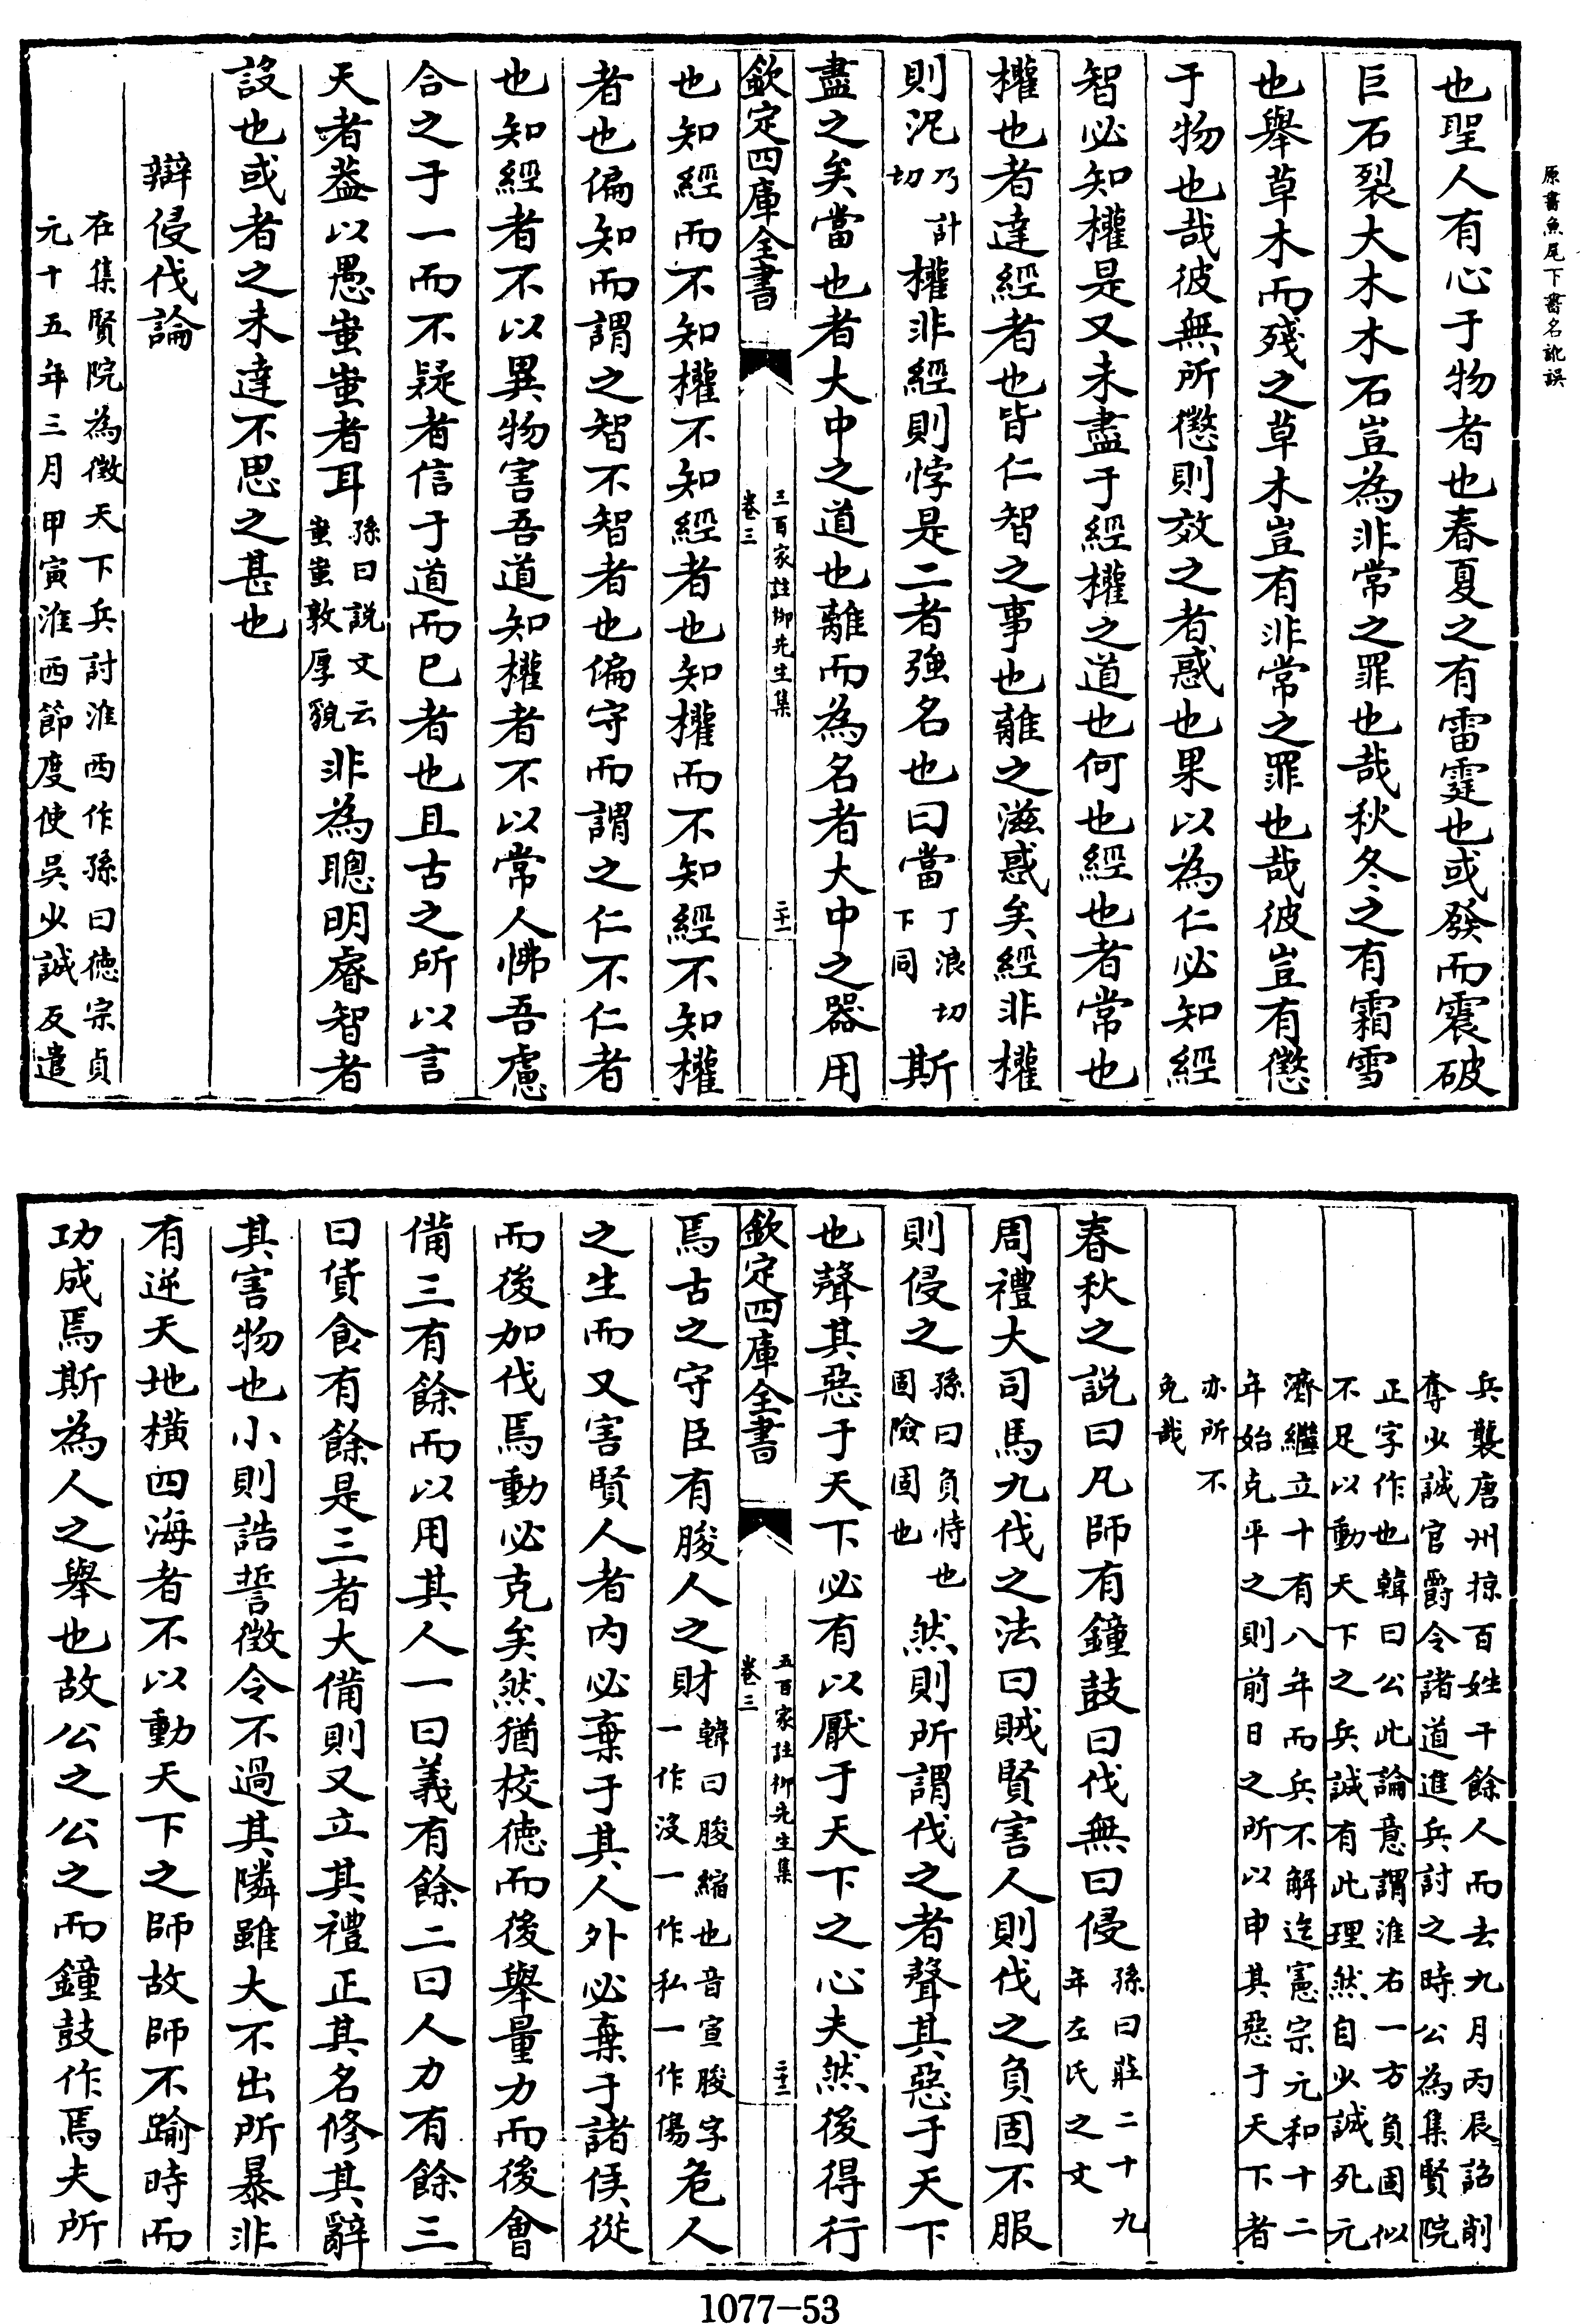 原書魚尾下書名訛誤
也聖人有心于物者也春夏之有雷霆也或發而震破
巨石裂大木木石豈為非常之罪也哉秋冬之有霜雪
也舉草木而殘之草木豈有非常之罪也哉彼豈有懲
于物也哉彼無所懲則效之者惑也果以為仁必知經
智必知權是又未盡于經權之道也何也經也者常也
權也者達經者也皆仁智之事也離之滋惑矣經非權
則泥乃計切權非經則悖是二者強名也曰當丁浪切下同斯
盡之矣當也者大中之道也離而為名者大中之器用
欽定四庫全書
三百家註柳先生集
卷三
二十一
也知經而不知權不知經者也知權而不知經不知權
者也偏知而謂之智不智者也偏守而謂之仁不仁者
也知經者不以異物害吾道知權者不以常人怫吾慮
合之于一而不疑者信于道而已者也且古之所以言
天者葢以愚蚩蚩者耳孫曰説文云蚩蚩敦厚貌非為聰明睿智者
設也或者之未達不思之甚也
辯侵伐論
在集賢院為徵天下兵討淮西作孫曰徳宗貞
元十五年三月甲寅淮西節度使吳少誠反遣
兵襲唐州掠百姓千餘人而去九月丙辰詔削
奪少誠官爵令諸道進兵討之時公為集賢院
正字作也韓曰公此論意謂淮右一方負固似
不足以動天下之兵誠有此理然自少誠死元
濟繼立十有八年而兵不解迄憲宗元和十二
年始克平之則前日之所以申其惡于天下者
亦所不
免哉
春秋之説曰凡師有鐘鼓曰伐無曰侵孫曰莊二十九年左氏之文
周禮大司馬九伐之法曰賊賢害人則伐之負固不服
則侵之孫曰負恃也固險固也然則所謂伐之者聲其惡于天下
也聲其惡于天下必有以厭于天下之心夫然後得行
欽定四庫全書
五百家註柳先生集
卷三
二十二
焉古之守臣有朘人之財韓曰朘縮也音宣朘字一作沒一作私一作傷危人
之生而又害賢人者内必棄于其人外必棄于諸侯從
而後加伐焉動必克矣然猶校徳而後舉量力而後會
備三有餘而以用其人一曰義有餘二曰人力有餘三
曰貨食有餘是三者大備則又立其禮正其名修其辭
其害物也小則誥誓徵令不過其隣雖大不出所暴非
有逆天地横四海者不以動天下之師故師不踰時而
功成焉斯為人之舉也故公之公之而鐘鼓作焉夫所
1077-53